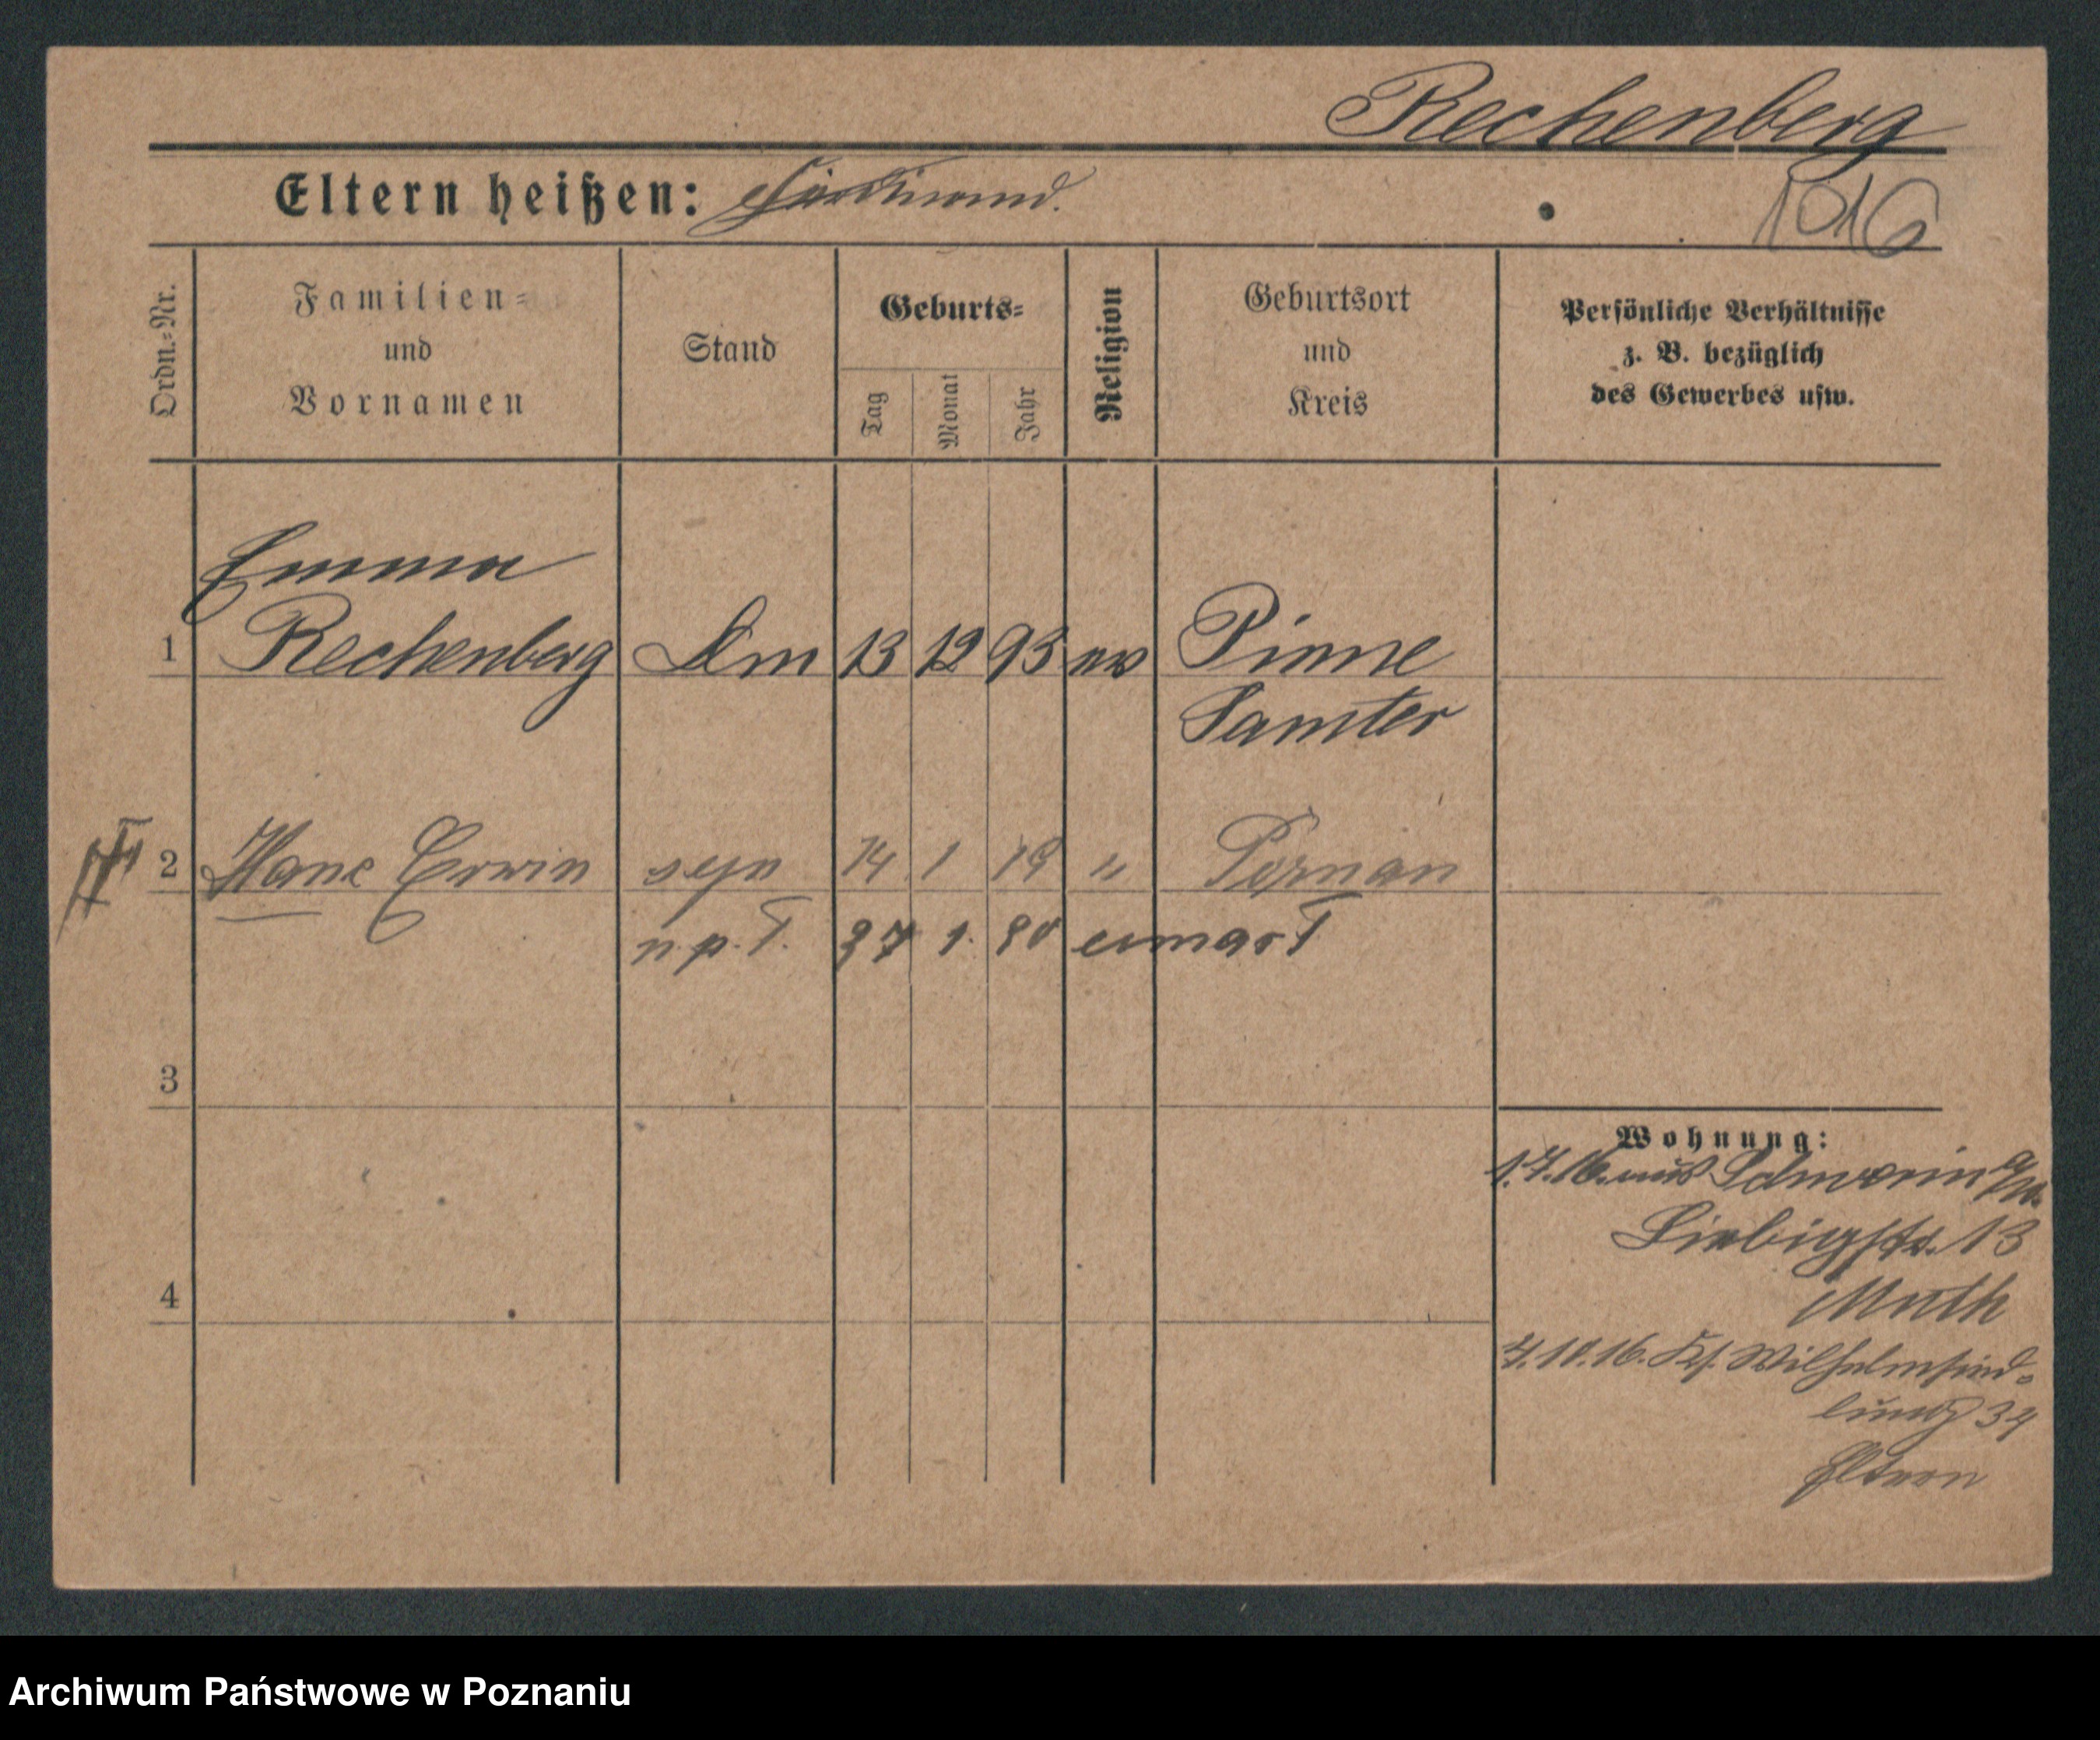 Rechenberg
Eltern heißen: Ferdinand.
1016
Ordn.-Nr.
Familien-
und
Vornamen
Stand
Geburts-
Tag
Monat
Jahr
Religion
Geburtsort
und
Kreis
Persönliche Verhältnisse
z. B. bezüglich
des Gewerbes usw.
Emma
1 Rechenberg Dm 13 12 93 ev Pinne
Samter
2 Hans Erwin syn 14 1 19 " Poznan
n.p.T. 27 1. 20 umarł
3
Wohnung:
1.7.16. aus Schwerin
Liebigstr. 13
Muth
4
7.10.16. Wilhelmsied-
lung 34
Eltern
Archiwum Państwowe w Poznaniu